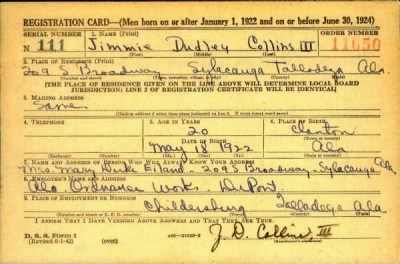 REGISTRATION CARD—(Men born on or after January 1, 1922 and on or before June 30, 1924)
SERIAL NUMBER 1. NAME (Print) ORDER NUMBER
N 111 Jimmie Dudley Collins III 11650
(First) (Middle) (Last)
2. PLACE OF RESIDENCE (Print)
209 S Broadway Sylacauga Talladega Ala.
(Number and street) (Town, township, village, or city) (County) (State)
[THE PLACE OF RESIDENCE GIVEN ON THE LINE ABOVE WILL DETERMINE LOCAL BOARD
JURISDICTION; LINE 2 OF REGISTRATION CERTIFICATE WILL BE IDENTICAL]
3. MAILING ADDRESS
Same
4. TELEPHONE 5. AGE IN YEARS 6. PLACE OF BIRTH
20 Clanton
DATE OF BIRTH
May 18 1922 Ala
(Exchange) (Number) (Mo.) (Day) (Yr.) (State or country)
7. NAME AND ADDRESS OF PERSON WHO WILL ALWAYS KNOW YOUR ADDRESS
Mrs. Mary Eiland - 209 S Broadway - Sylacauga Ala
8. EMPLOYER'S NAME AND ADDRESS
Ala Ordnance Works. DuPont
9. PLACE OF EMPLOYMENT OR BUSINESS
Childersburg Talladega Ala
(Number and street or R. F. D. number) (Town) (County) (State)
I AFFIRM THAT I HAVE VERIFIED ABOVE ANSWERS AND THAT THEY ARE TRUE.
D. S. S. Form 1
(Revised 6-1-42) (over)
J. D. Collins, III
(Registrant's signature)